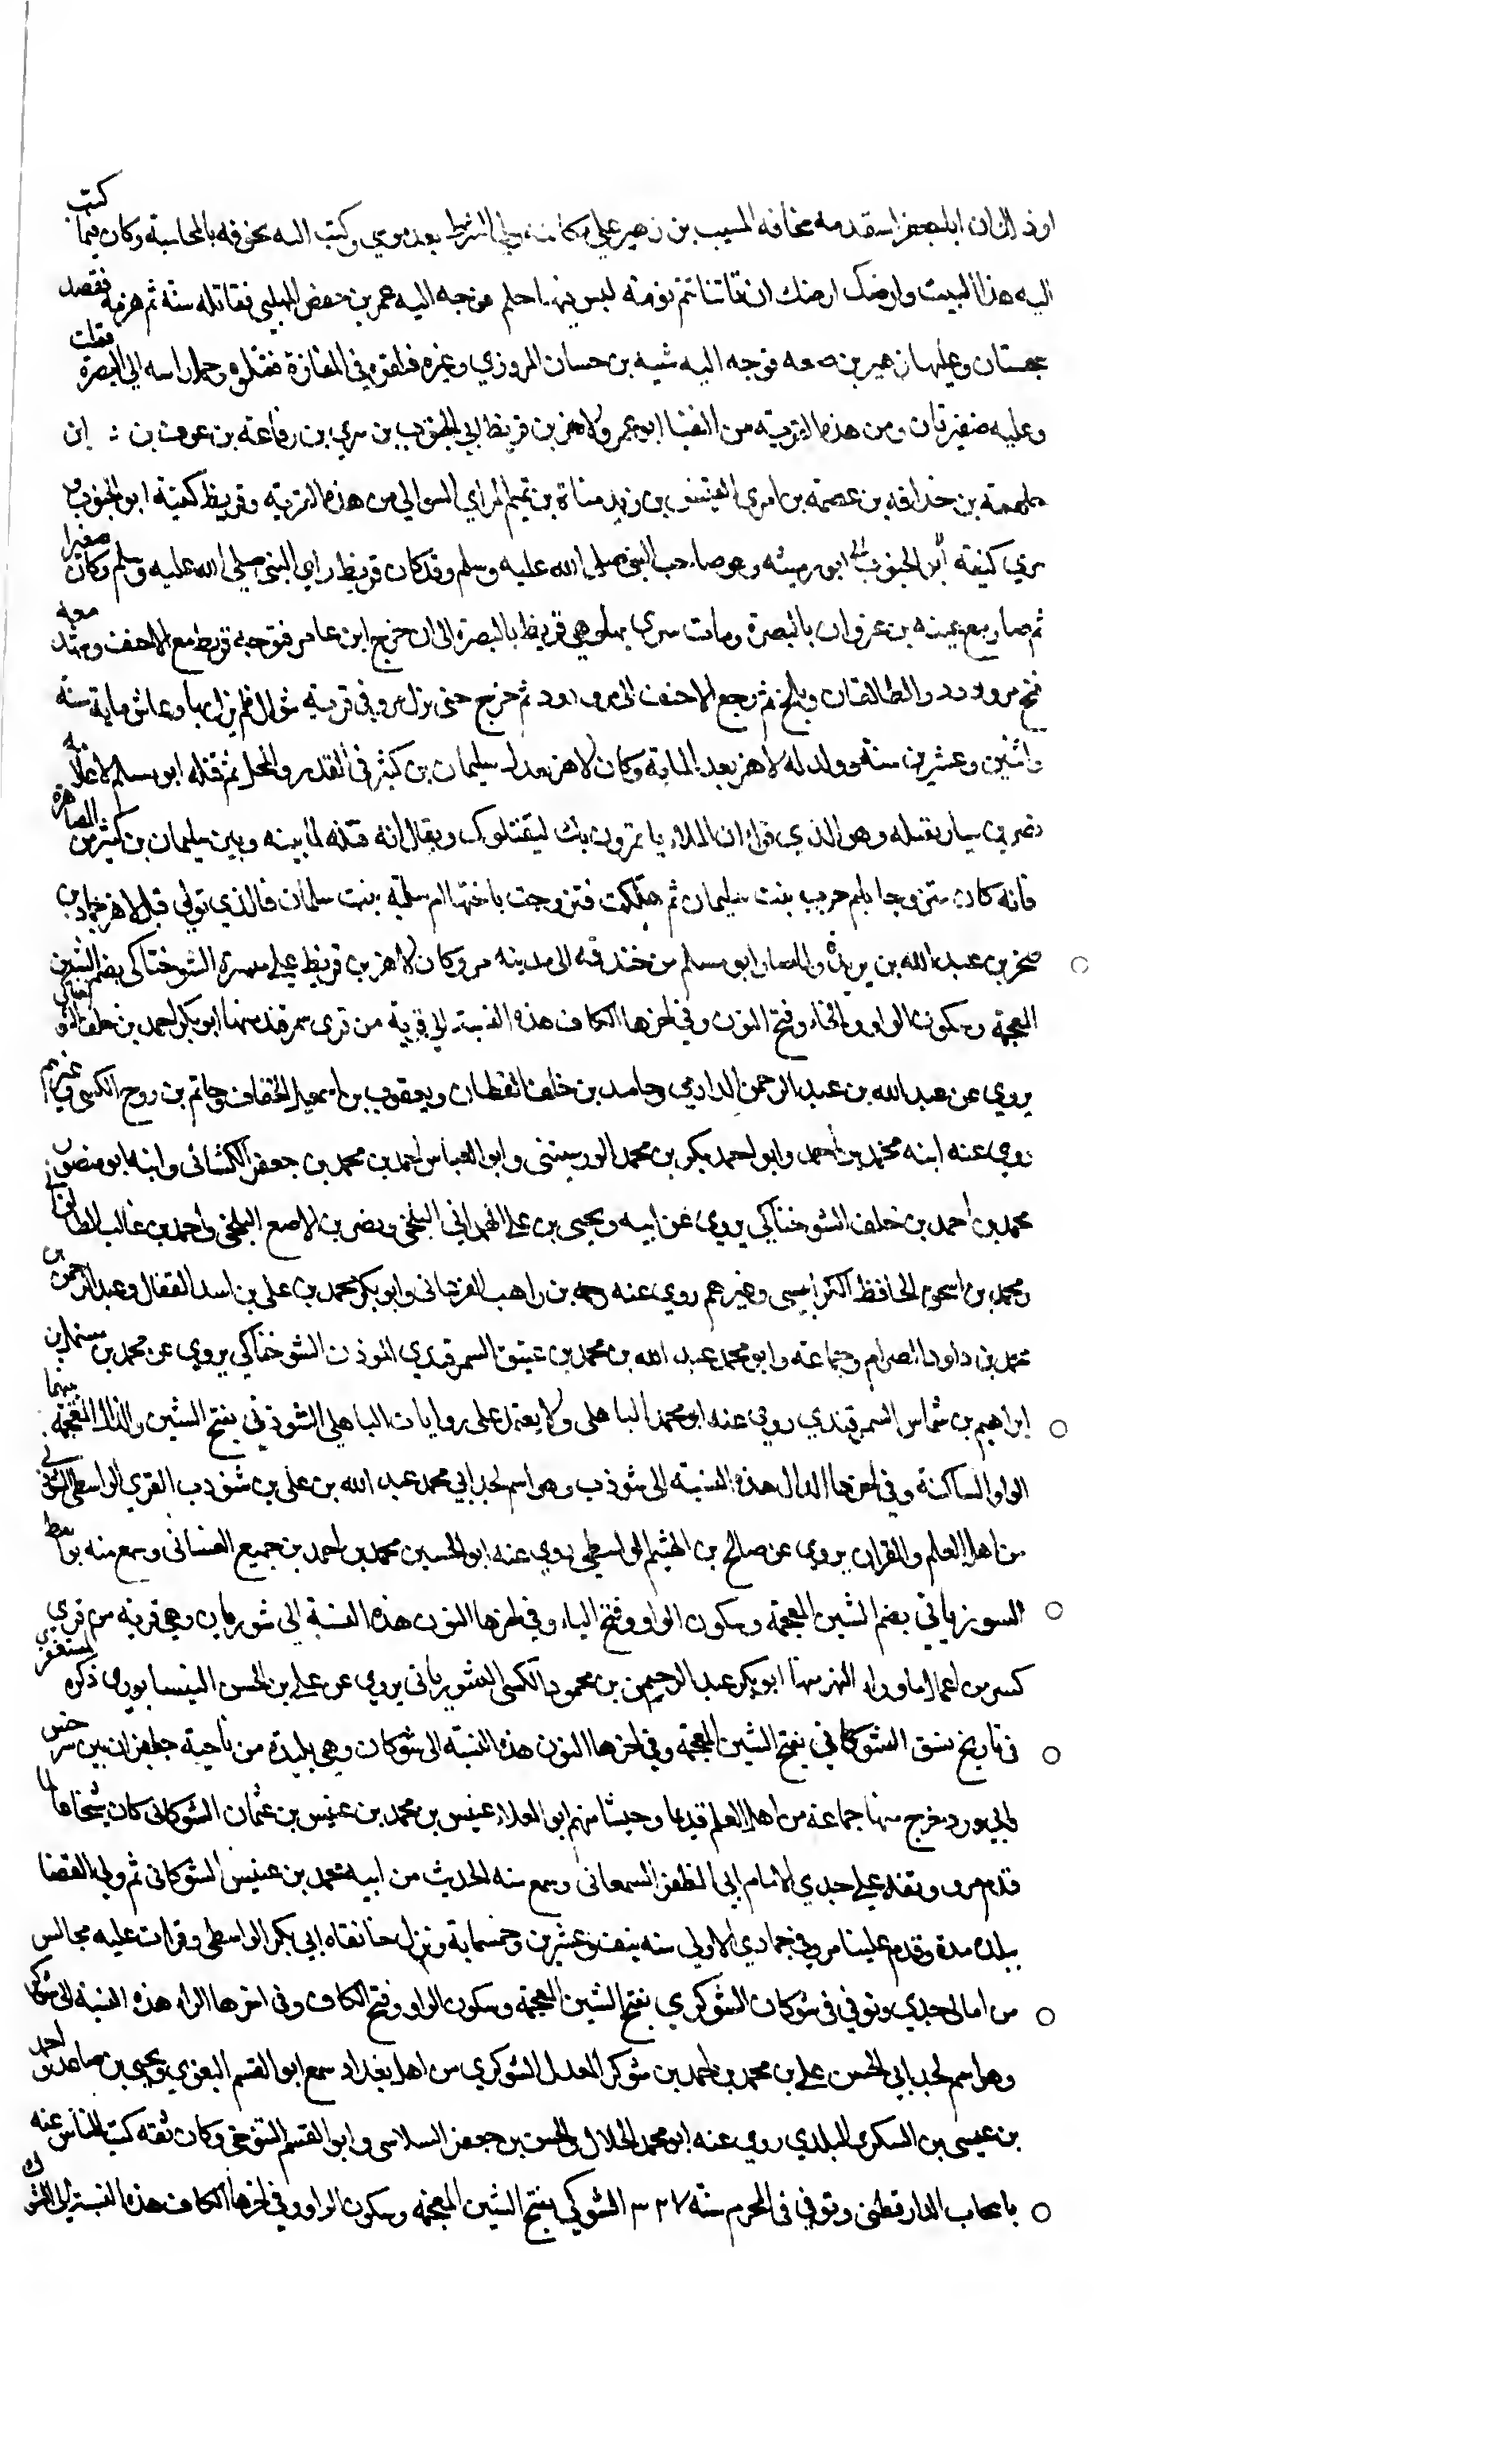 اوذ الى ان ابا جعفر استقدمه مخافه المسيب بن زهير على مكانته ولي الشرط بعد موسى وكتب اليه يخوفه بالمحاسبة وكان فيما كتب
اليه هذا البيت وارضك ارضك ان تاتنا تنم نومة ليس فيها حلم فوجه اليه عمر بن حفص المهلبي فقاتله سنة ثم هزمه فقصد
سجستان وعليها زهير بن فوجه اليه شبه بن حسان المروزي وغيره فلقوه في المفازة فقتلوه وحمل راسه الى البصرة فقلت
وعليه ضفيرتان ومن هذه القرية من النقبا ابو عمرو لاهز بن قريظ ابي الجنوب بن سري بن رفاعة بن عوف بن ابن
بن خدافه بن عصمة بن امرى القيس بن زيد مناة بن تميم المراي السوالي من هذه القرية وقريظ كنيته ابو الجنوب
سري كنيته ابو الجنوب ابو رمثه وهو صاحب النبي صلى الله عليه وسلم وقد كان قريظ راى النبي صلى الله عليه وسلم وكان صغيرا
ثم صار مع عيينه بن غزوان بالبصرة ومات سري بها وبقي قريظ بالبصرة الى ان خرج ابن عامر فتوجه قريظ مع الاحنف وشهد معه
فتح مروروذ والطالقان وبلخ ثم رجع الاحنف الى مروروذ ثم خرج حتى نزل مرو في قرية شوال فلم يزل بها وعاش مايه سنة
واثنين وعشرين سنة وولد له لاهز بعد الماية وكان لاهز بعد سليمان بن كثير في القدر والمحل ثم قتله ابو مسلم لاعلامه
نصر بن سيار بقتله وهو الذي قرا ان الملاء ياتمرون بك ليقتلوك ويقال انه قتله لما بينه وبين سليمان بن كثير من المصاهرة
فانه كان متزوجا بام حرب بنت سليمان ثم هلكت فتزوجت باختها ام سلمة بنت سلمان فالذي تولى قتل لاهز حماد بن
صخر بن عبد الله بن بريدة ولما صار ابو مسلم من خندقه الى مدينه مرو كان لاهز بن قريظ على ميسرة الشوخناكي بضم الشين
المعجمة وسكون الواو والخاء وفتح النون وفي اخرها الكاف هذه النسبة الى قرية من قرى سمرقند منها ابو بكر احمد بن خلف
يروي عن عبد الله بن عبد الرحمن الدارمي وحامد بن خلف القطان ويعقوب بن اسمعيل الخفاف وحاتم بن روح الكسي وغيرهم
روى عنه ابنه محمد بن احمد وابو احمد بكر بن محمد الورسنيني وابو العباس احمد بن محمد بن جعفر الكشاني وابنه ابو منصور
محمد بن احمد بن خلف الشوخناكي يروي عن ابيه ويحيى بن علي الهمداني البلخي ونصر بن الاصبع البلخي واحمد بن غالب الطالقاني
ومحمد بن اسحق الحافظ الكرابيسي وغيرهم روى عنه بن راهب الفرغاني وابو بكر محمد بن علي بن اسد القفال وعبد الرحمن بن
محمد بن داود الصرام وجماعة وابو محمد عبد الله بن محمد بن عتيق السمرقندي الموذن الشوخناكي يروي عن محمد بن سهل بن
ابراهيم بن شماس السمرقندي روى عنه ابو محمد الباهلي ولا يعتمد على روايات الباهلي الشوذبي بفتح الشين والذال المعجمة بينهما
الواو الساكنة وفي اخرها الدال هذه النسبة الى شوذب وهو اسم لجد ابي محمد عبد الله بن علي بن شوذب المقري الواسطي الشوذبي
من اهل العلم والقران يروي عن صالح بن الهيثم الواسطي روى عنه ابو الحسين محمد بن احمد بن جميع الغساني وسمع منه بواسط
الشورباني بضم الشين المعجمة وسكون الواو وفتح الباء وفي اخرها النون هذه النسبة الى شوربان وهي قرية من قرى
كس من اعمال ما وراء النهر منها ابو بكر عبد الرحيم بن محمود الكسي الشورباني يروي عن علي بن الحسن النيسابوري ذكره المستغفري
في تاريخ نسف الشوكاني بفتح الشين المعجمة وفي اخرها النون هذه النسبة الى شوكان وهي بليدة من ناحية خابران بين سرخس
وابيورد خرج منها جماعة من اهل العلم قديما وحديثا منهم ابو العلاء عنبس بن محمد بن عنبس بن عثمان الشوكاني كان شيخا
قدم مرو وتفقه على جدي الامام ابي المظفر السمعاني وسمع منه الحديث من ابيه محمد بن عنبس الشوكاني ثم ولي القضا
ببلده مدة وقدم علينا مرو في جمادي الاولى سنه نيف وعشرين وخمسماية ونزل خانقاه ابي بكر الواسطي وقرات عليه مجالس
من امالي جدي وتوفي في شوكان الشوكري بفتح الشين المعجمة وسكون الواو وفتح الكاف وفي اخرها الراء هذه النسبة الى شوكر
وهو اسم لجد ابي الحسن علي بن محمد بن احمد بن شوكر المعدل الشوكري من اهل بغداد سمع ابو القسم البغوي ويحيى بن صاعد واحمد
بن عيسى بن السكري البلدي روى عنه ابو محمد الخلال والحسن بن جعفر السلاسي وابو القسم التنوخي وكان ثقه كتب الناس عنه
بانتخاب الدارقطني وتوفي في المحرم سنة ٣٨٧ الشوكي بفتح الشين المعجمة وسكون الواو وفي اخرها الكاف هذه النسبة الى الشوك